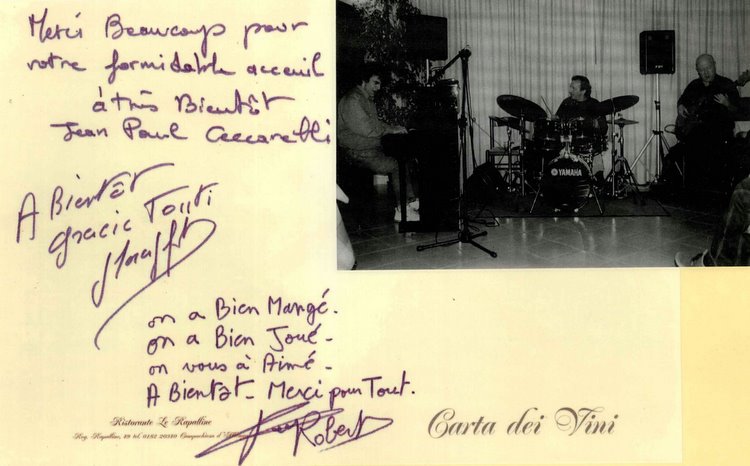 Merci Beaucoup pour
votre formidable acceuil
à très Bientôt
Jean Paul Ceccarelli
A Bientôt
gracie Toutti
on a Bien Mangé.
on a Bien Joué.
on vous à Aimé.
A Bientot. Merci pour Tout.
Robert
YAMAHA
Ristorante Le Rapalline
Reg. Rapalline, 19 tel. 0182 20210
Carta dei Vini